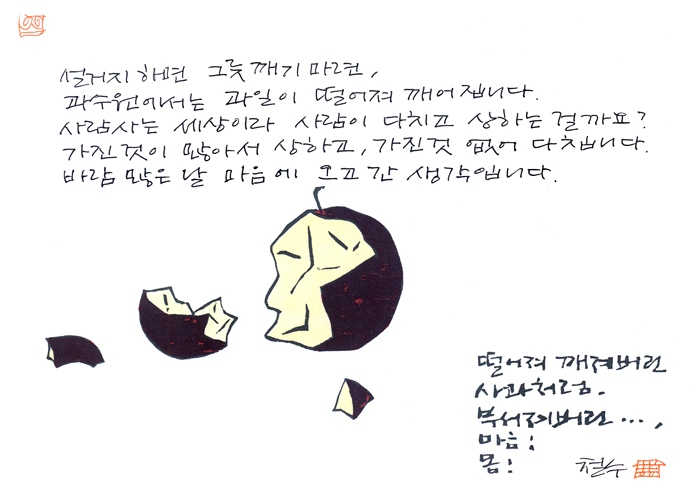 설거지 하면 그릇 깨기 마련,
과수원에서는 과일이 떨어져 깨어집니다.
사람사는 세상이라 사람이 다치고 상하는 걸까요?
가진것이 많아서 상하고, 가진것 없어 다칩니다.
바람 많은 날 마음에 오고 간 생각입니다.
떨어져 깨져버린
사과처럼.
부서져버린 ...,
마음!
몸!
철수